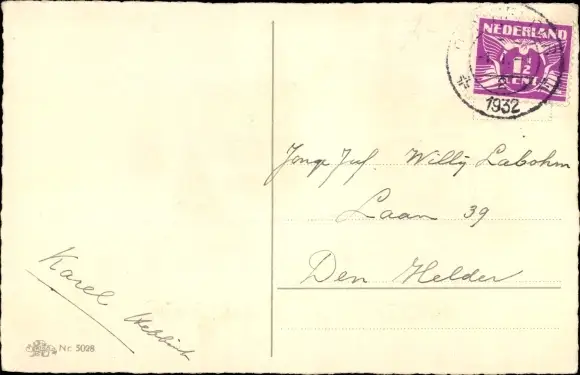 NEDERLAND
1½
CENT
1932
Jonge Juf. Willy Labohm
Laan 39
Den Helder
Karel
Nr. 5028